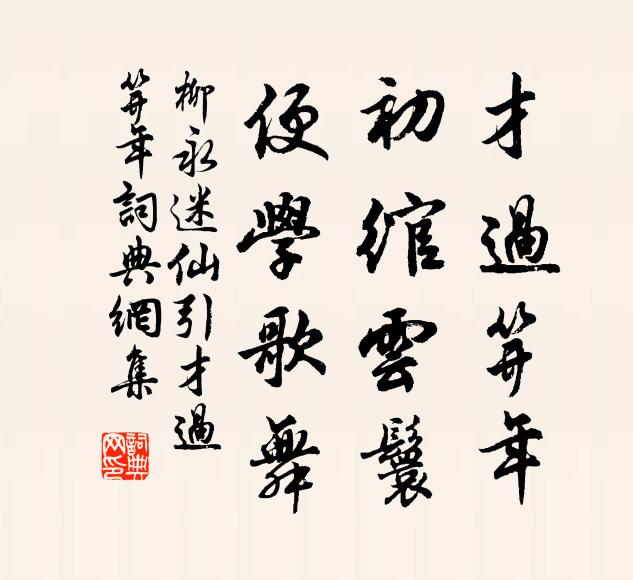 才過笄年
初綰雲鬟
便學歌舞
柳永迷仙引才過
笄年詞典網集
詞典網印